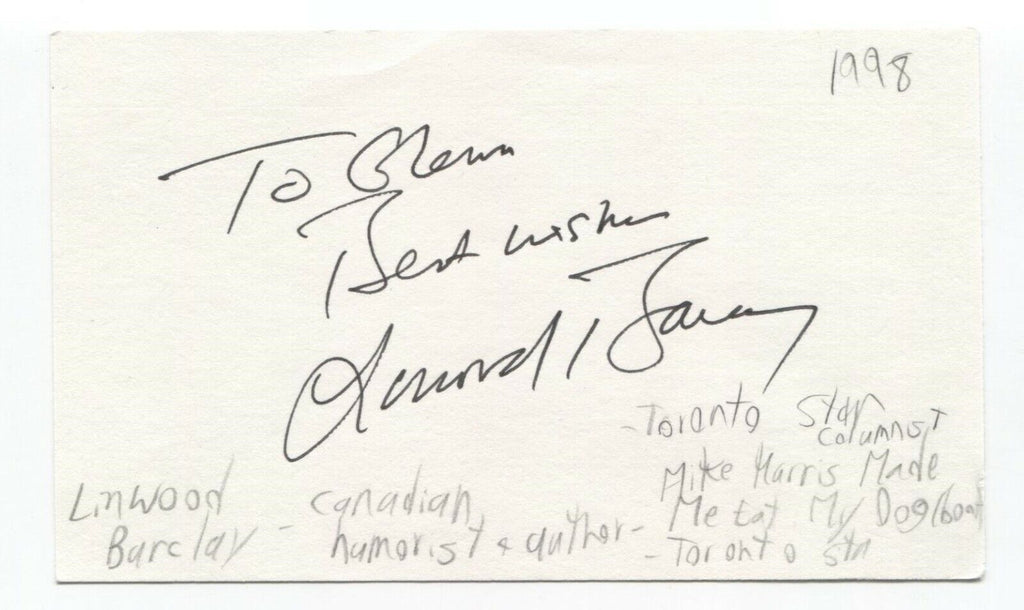 1998
To Glenn
Best wishes
Linwood Barclay
-Toronto Star
columnist
Mike Harris Made
Me Eat My Dog (book
-Toronto Star
Linwood
Barclay - Canadian
humorist + author-